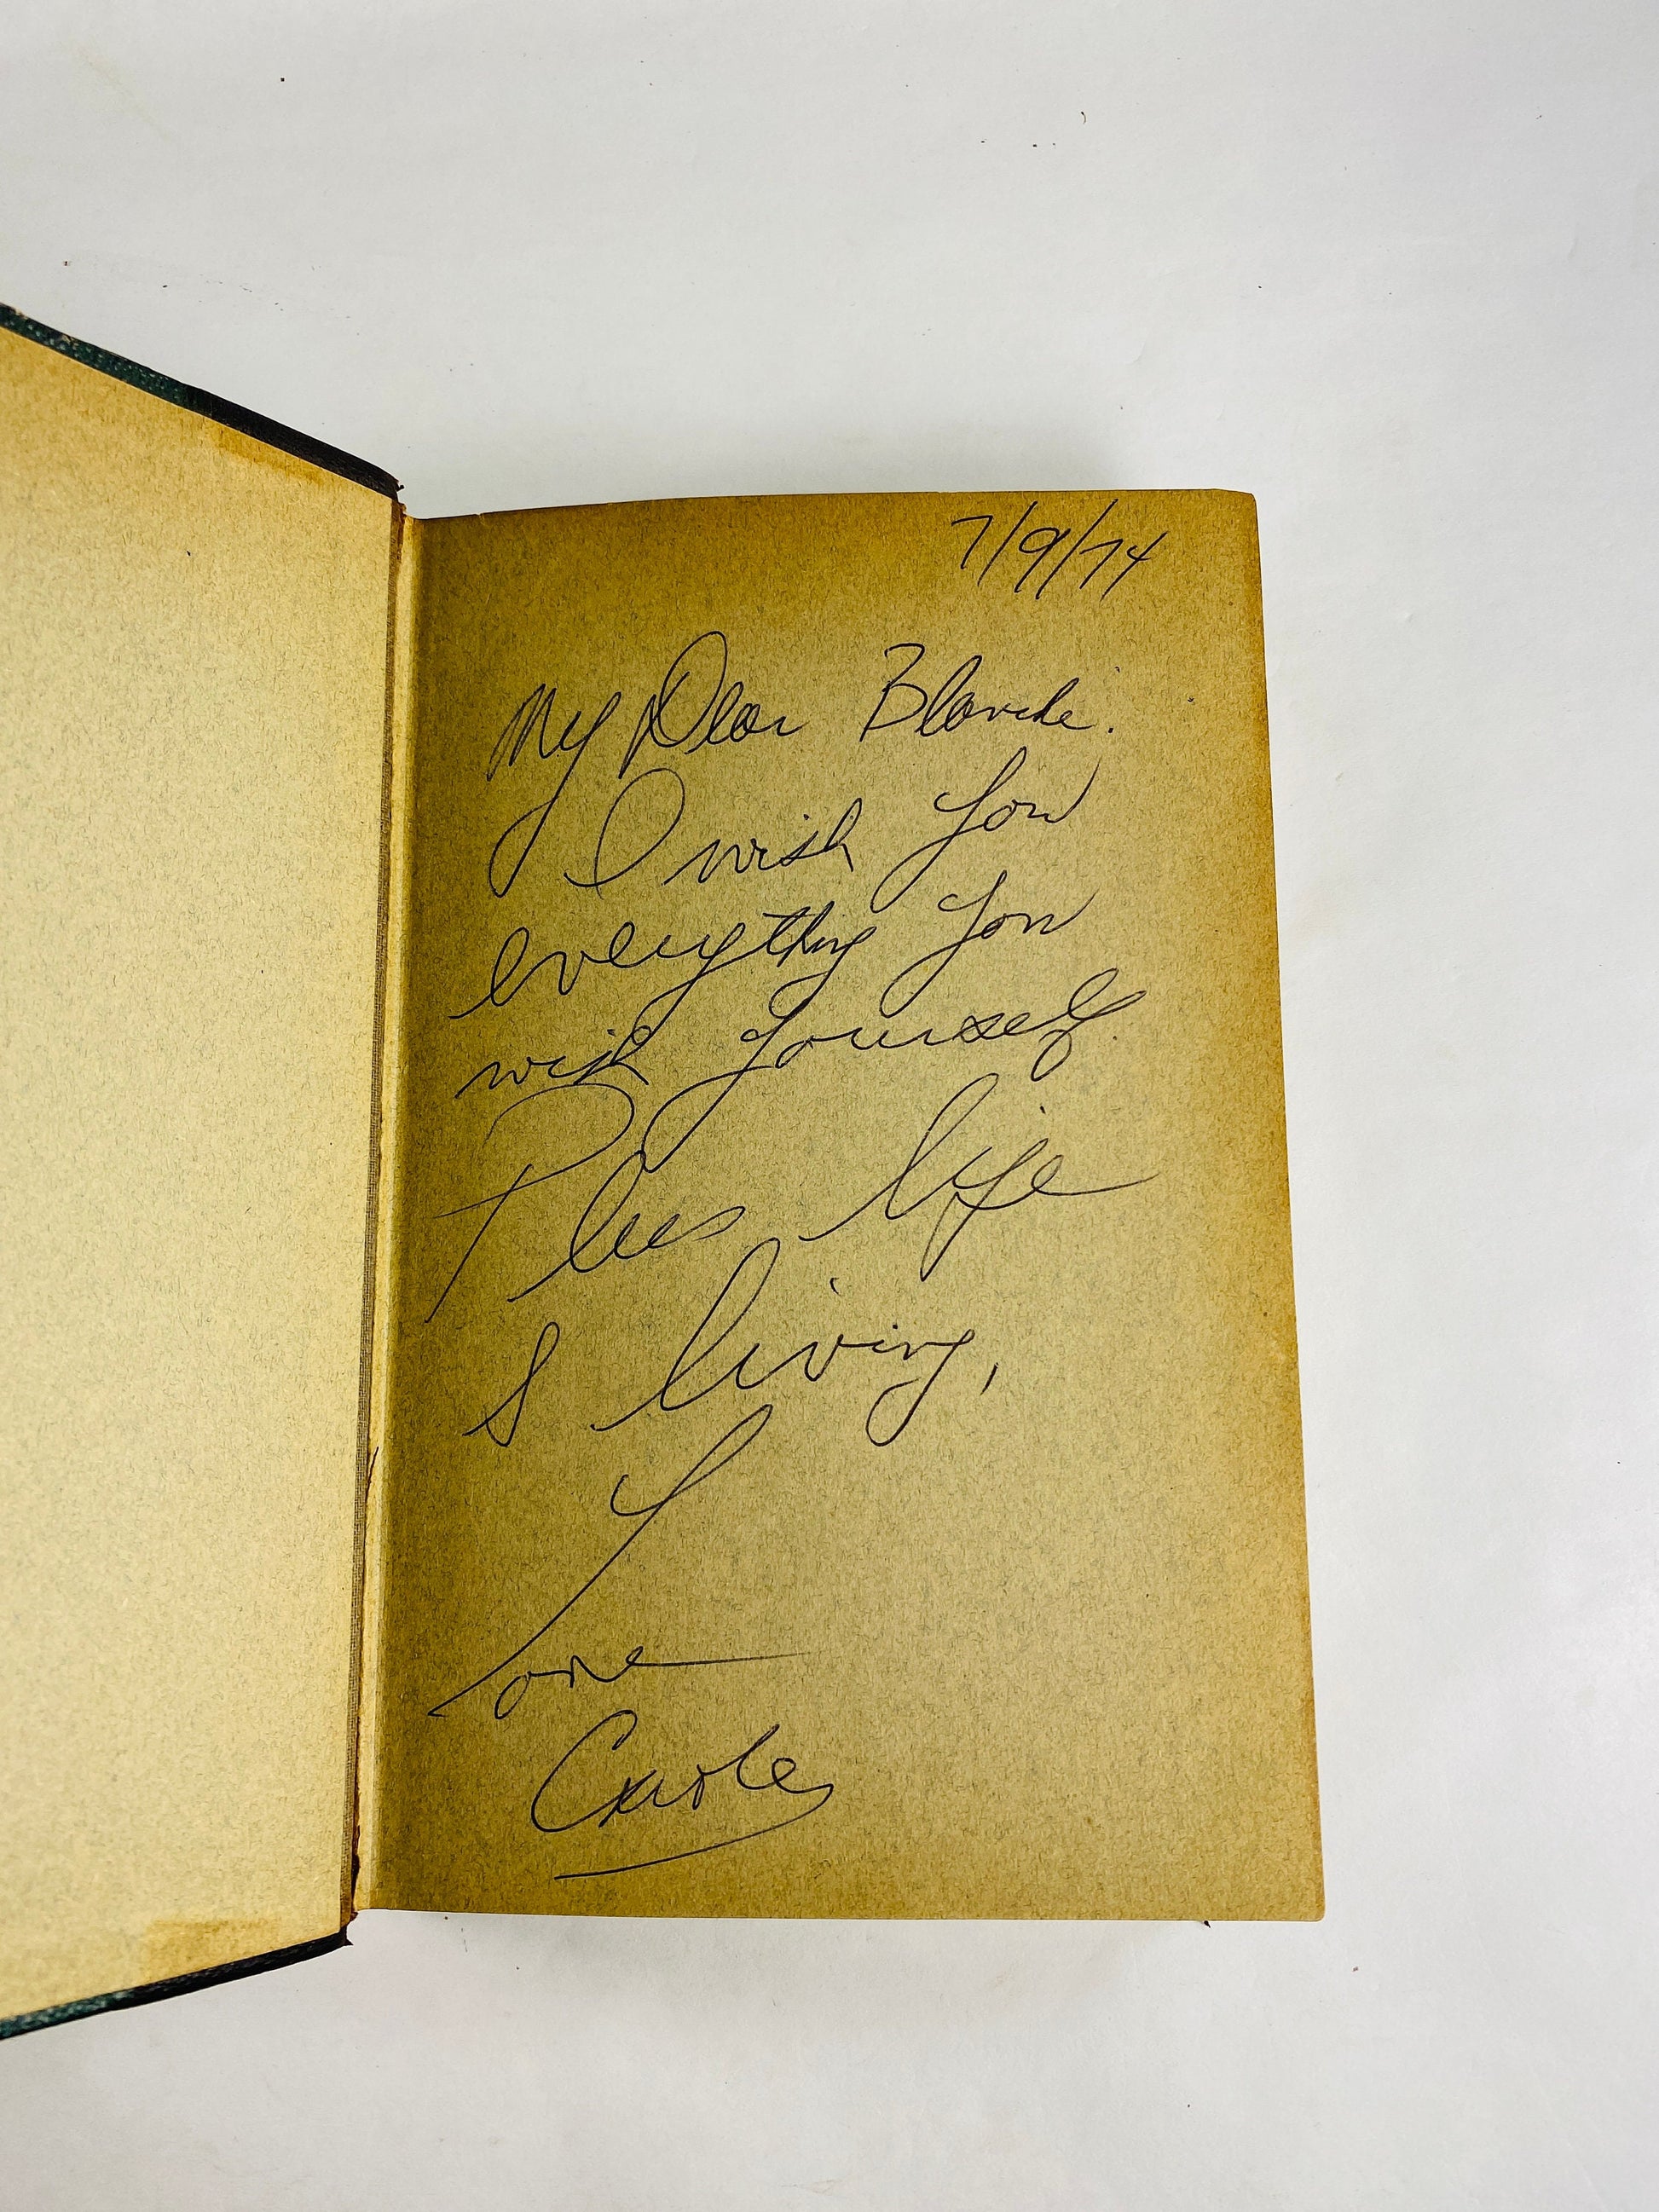 7/9/74
My Dear Blanche.
I wish you
everything you
wish yourself.
Plus life
& living,
Love
Carole